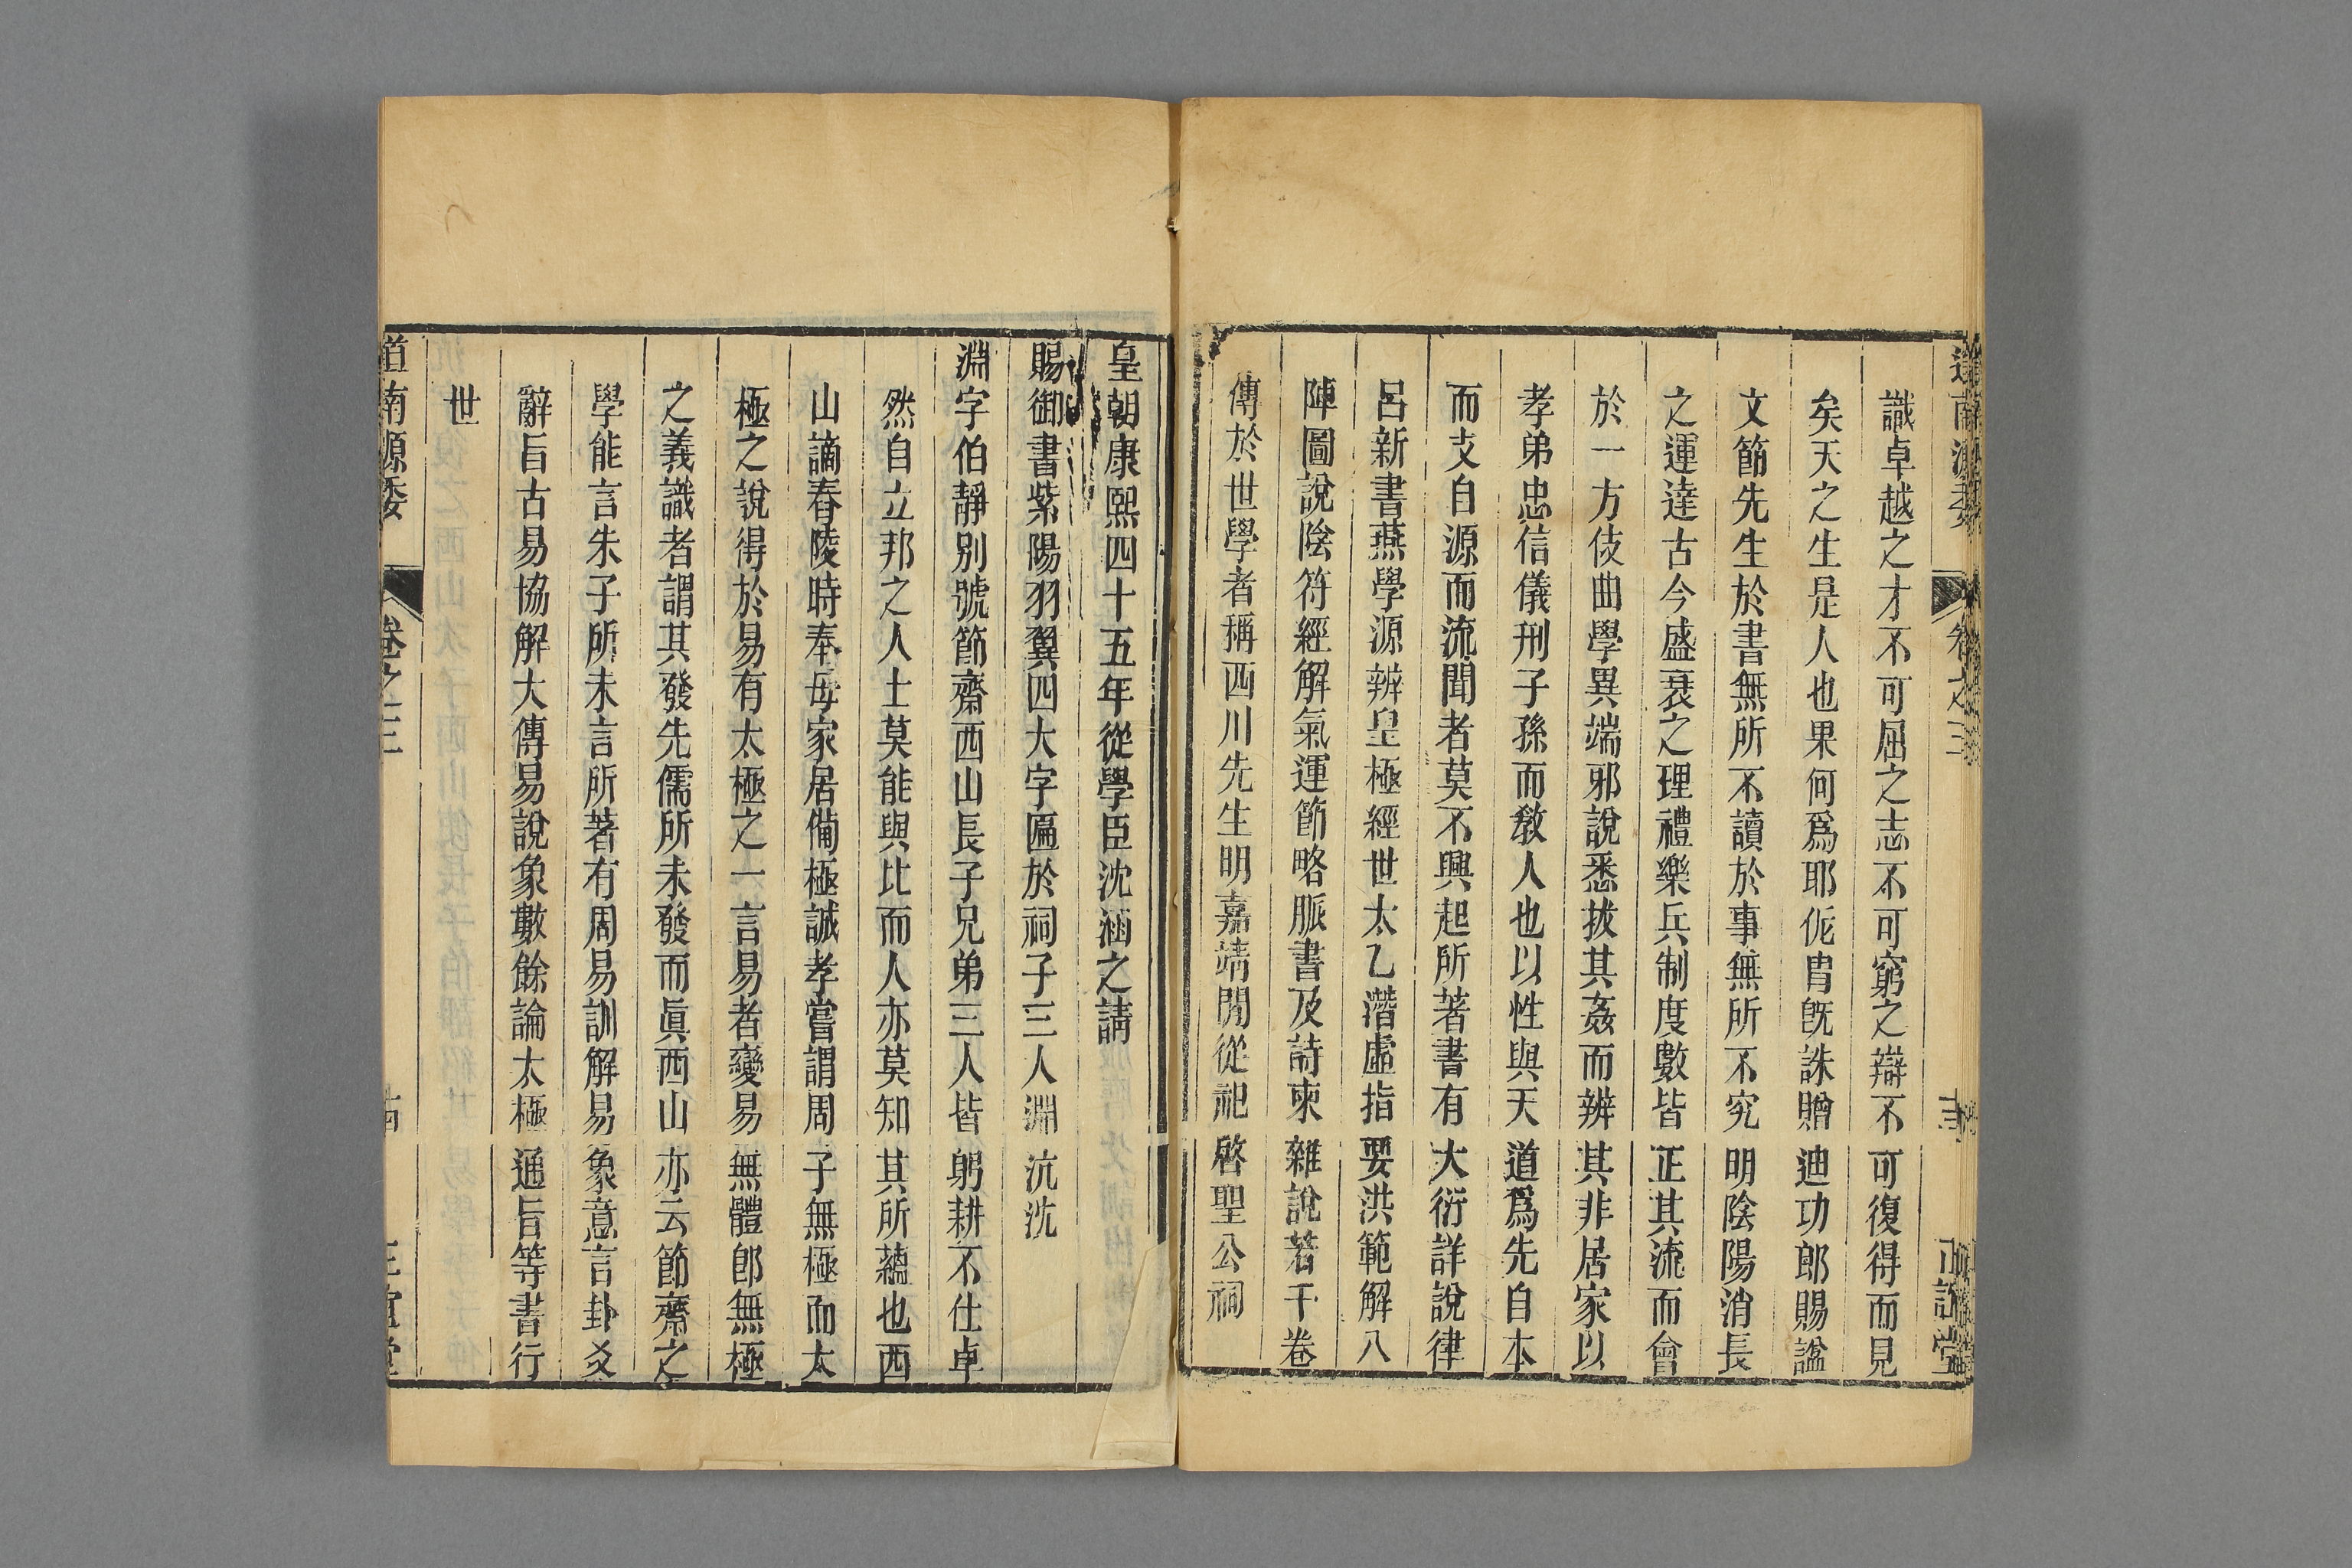 識卓越之才不可屈之志不可窮之辯不可復得而見
矣天之生是人也果何爲耶侂冑旣誅贈迪功郎賜諡
文節先生於書無所不讀於事無所不究明陰陽消長
之運達古今盛衰之理禮樂兵制度數皆正其流而會
於一方伎曲學異端邪說悉拔其姦而辨其非居家以
孝弟忠信儀刑子孫而敎人也以性與天道爲先自本
而支自源而流聞者莫不興起所著書有大衍詳說律
呂新書燕學源辨皇極經世太乙潛虛指要洪範解八
陣圖說陰符經解氣運節略脈書及詩柬雜說若干卷
傳於世學者稱西川先生明嘉靖閒從祀啓聖公祠
皇朝康熙四十五年從學臣沈涵之請
賜御書紫陽羽翼四大字匾於祠子三人淵沆沈
淵字伯靜別號節齋西山長子兄弟三人皆躬耕不仕卓
然自立邦之人士莫能與比而人亦莫知其所蘊也西
山謫舂陵時奉母家居備極誠孝嘗謂周子無極而太
極之說得於易有太極之一言易者變易無體卽無極
之義識者謂其發先儒所未發而眞西山亦云節齋之
學能言朱子所未言所著有周易訓解易象意言卦爻
辭旨古易協解大傳易說象數餘論太極通旨等書行
世
道南源委
卷之三